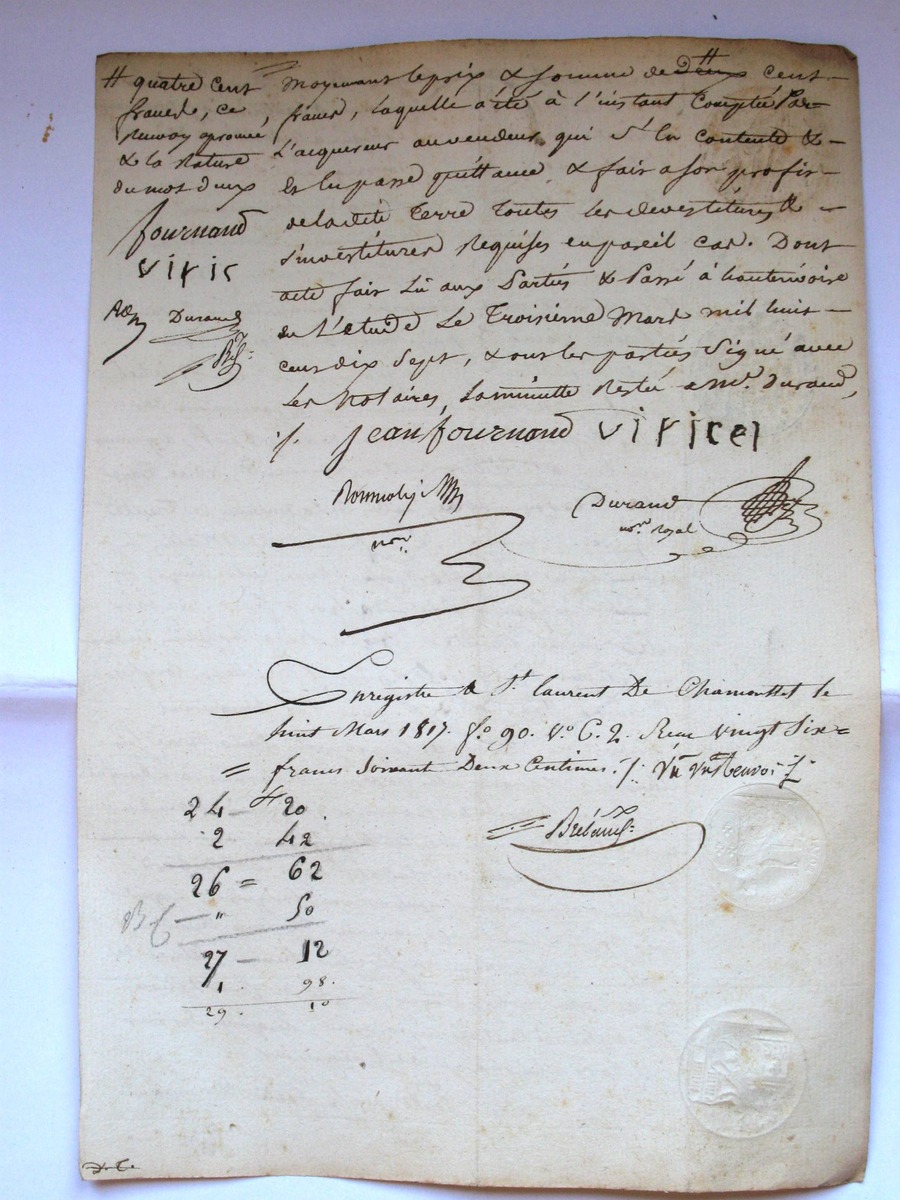 # quatre cent
francs, ce
renvoy aprouvé,
& la rature
du mot deux
fournand
viric
Durand
moyenant le prix & somme de deux cent
francs, laquelle a été à l'instant comptée par
l'acquereur au vendeur qui s'en contente &
en passe quittance, & fait a son profit
de la dite terre toutes les devestitures &
investitures requises en pareil cas. Dont
acte fait lû aux parties & passé à hauterivoire
en l'etude le troisieme mars mil huit
cent dix sept, & ont les parties signé avec
les notaires, la minutte restée a me. durand,
jean fournand viricel
Durand
nore. Royal
nore.
Enregistré à St. laurent De Chamousset le
huit Mars 1817. fo. 90. vo. C. 2. Recu vingt six=
= francs soixante Deux Centimes. /. un renvoi
24 - 20
2 42
26 = 62
- " 50
27 - 12
1. 98.
29. 10